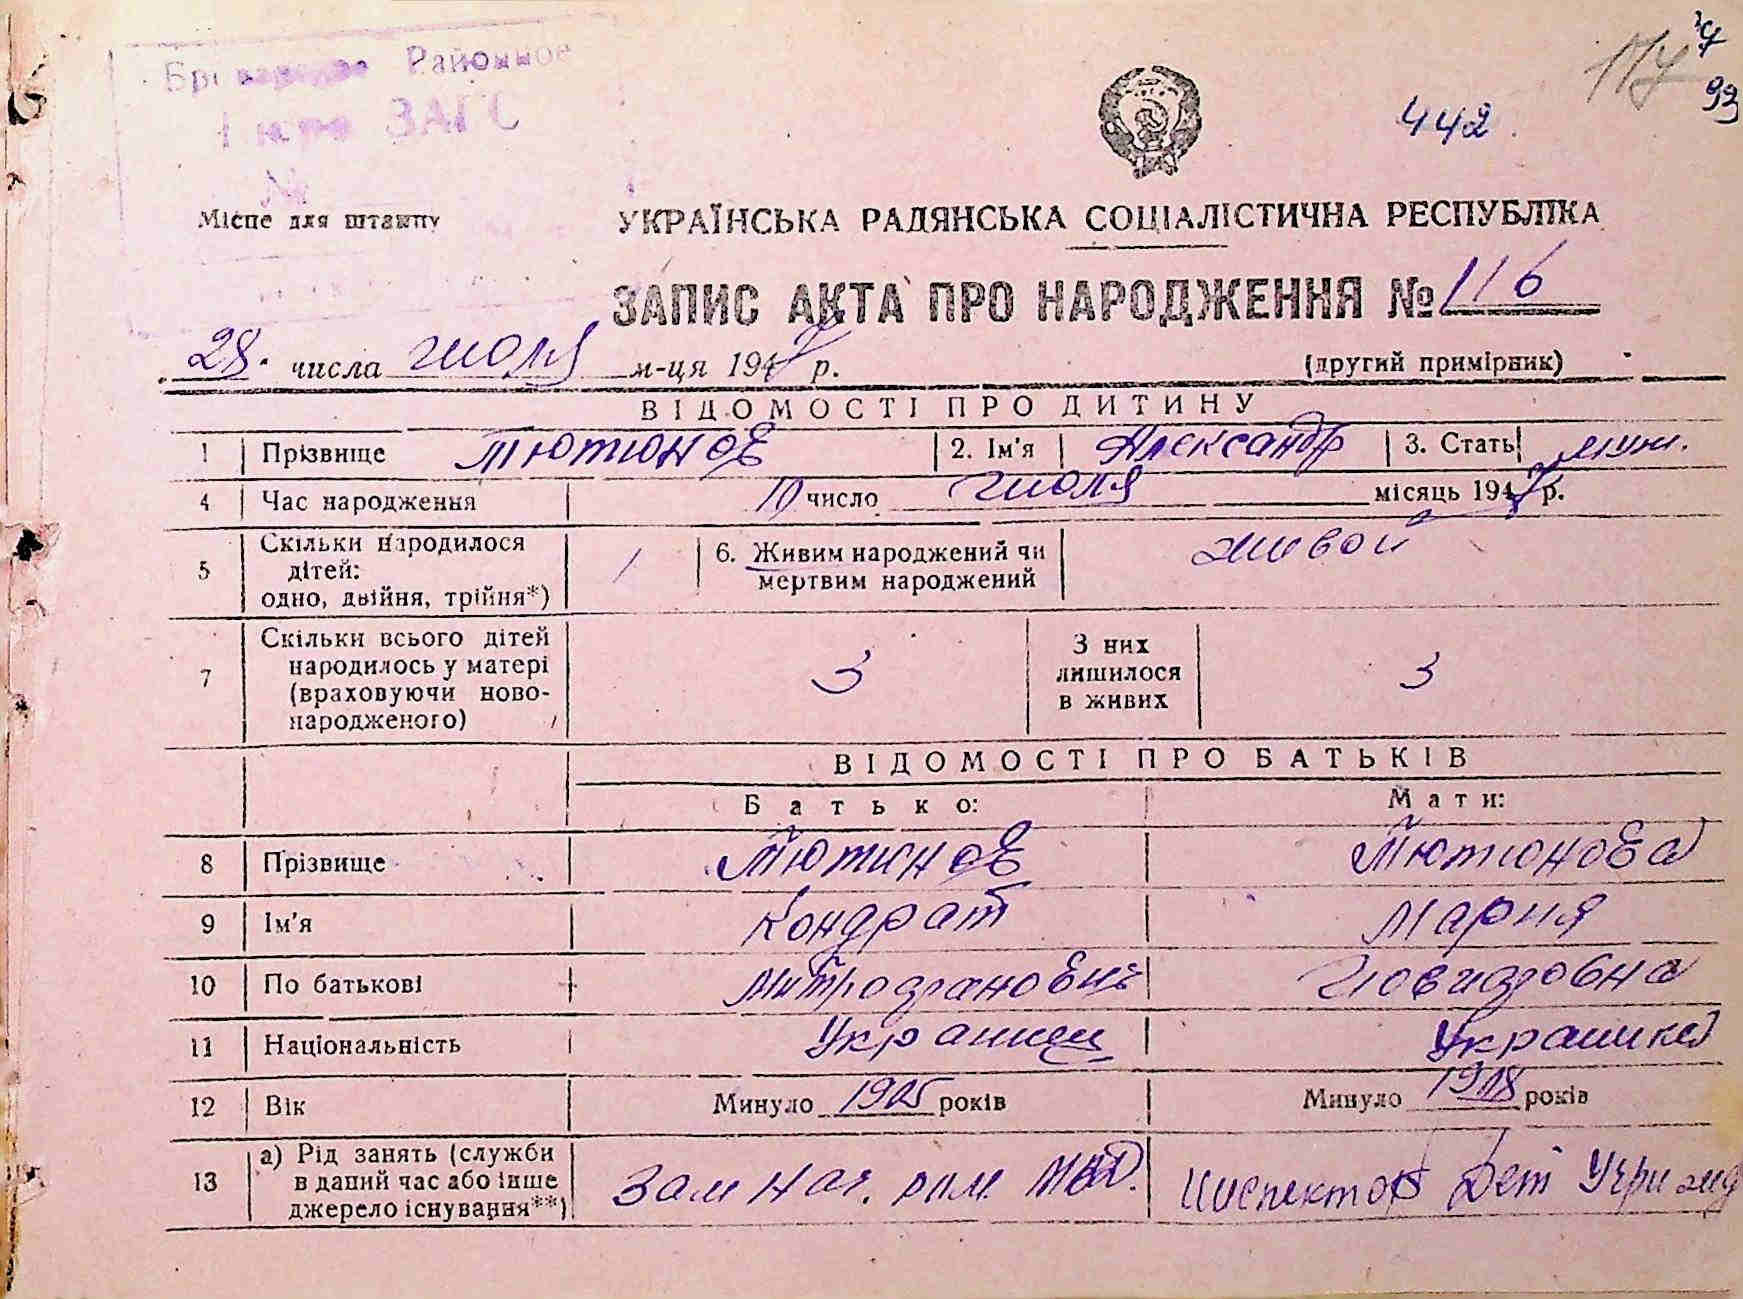 Районное
ЗАГС
№
174
93
442
Місце для штампу
УКРАЇНСЬКА РАДЯНСЬКА СОЦІАЛІСТИЧНА РЕСПУБЛІКА
ЗАПИС АКТА ПРО НАРОДЖЕННЯ № 116
28. числа июля м-ця 1947 р. (другий примірник)
ВІДОМОСТІ ПРО ДИТИНУ
1 Прізвище Тютюнов 2. Ім'я Александр 3. Стать муж.
4 Час народження 10 число июля місяць 1947 р.
5 Скільки народилося дітей: одно, двійня, трійня*) 1 6. Живим народжений чи мертвим народжений живой
7 Скільки всього дітей народилось у матері (враховуючи ново-народженого) 3 З них лишилося в живих 3
ВІДОМОСТІ ПРО БАТЬКІВ
Батько: Мати:
8 Прізвище Тютюнов Тютюнова
9 Ім'я Кондрат Мария
10 По батькові Митрофанович
11 Національність Украинец Украинка
12 Вік Минуло 1915 років Минуло 1918 років
13 а) Рід занять (служби в даний час або інше джерело існування**) Зам нач. МВД. Инспектор Дет